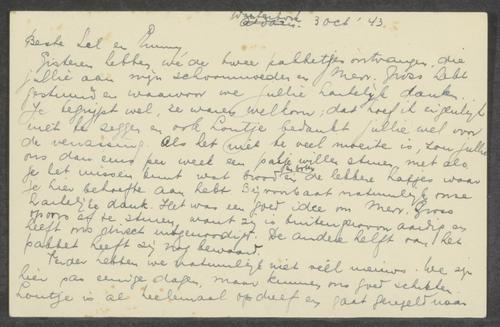 Westerbork
3 Oct '43
Beste Lel en
Gisteren hebben we de twee pakketjes ontvangen, die
jullie aan mijn schoonmoeder en Mevr. Gross hebt
gestuurd en waarvoor we jullie hartelijk danken.
Je begrijpt wel, ze waren welkom; dat hoef ik eigenlijk
niet te zeggen en ook Loutje bedankt jullie wel voor
de verrassing. Als het niet te veel moeite is, zou jullie
ons dan eens per week een pakje willen sturen met als
je het missen kunt wat brood en de lekkere hapjes waar
je hier behoefte aan hebt. Bij voorbaat natuurlijk onze
hartelijke dank. Het was een goed idee om Mevr. Gross
op te sturen, want zij is buitengewoon aardig en
heeft ons direct uitgenoodigd. De andere helft van het
pakket heeft zij nog bewaard.
Verder hebben we natuurlijk niet véél nieuws. We zijn
hier pas eenige dagen, maar kunnen ons goed schikken.
Loutje is al heelemaal op dreef en gaat geregeld naar